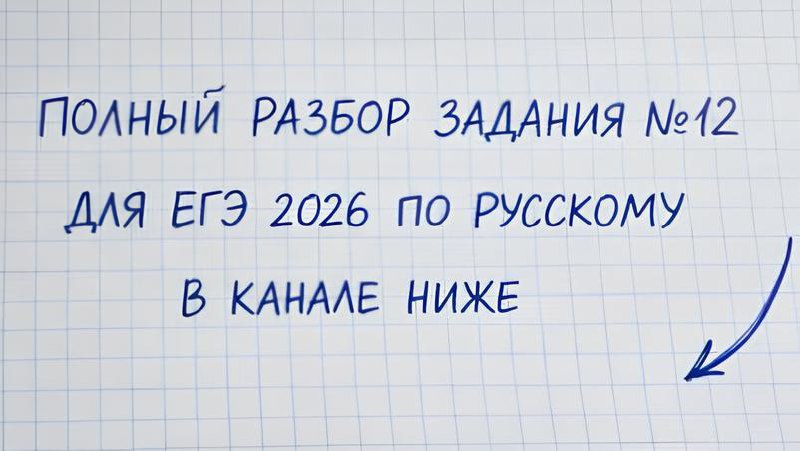 ПОЛНЫЙ РАЗБОР ЗАДАНИЯ №12
ДЛЯ ЕГЭ 2026 ПО РУССКОМУ
В КАНАЛЕ НИЖЕ